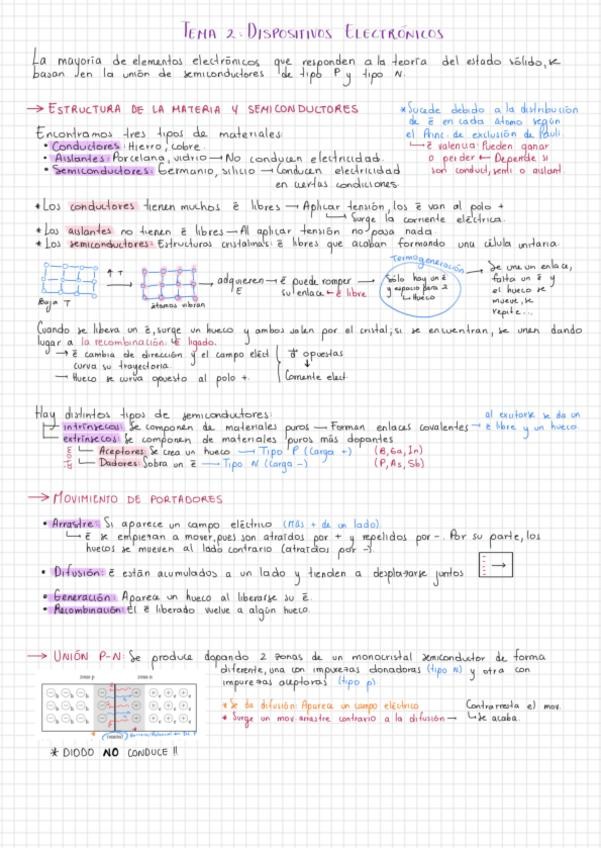 TEMA 2: DISPOSITIVOS ELECTRÓNICOS
La mayoría de elementos electrónicos que responden a la teoría del estado sólido, se
basan en la unión de semiconductores de tipo P y tipo N.
→ ESTRUCTURA DE LA MATERIA Y SEMICONDUCTORES
*Sucede debido a la distribución
de ē en cada átomo según
el Princ. de exclusión de Pauli.
↳ ē valencia: Pueden ganar
o perder ← Depende si
son conduct, semi o aislant.
Encontramos tres tipos de materiales:
• Conductores: Hierro, cobre.
• Aislantes: Porcelana, vidrio → No conducen electricidad.
• Semiconductores: Germanio, silicio → Conducen electricidad
en ciertas condiciones.
*Los conductores tienen muchos ē libres → Aplicar tensión, los ē van al polo +
↳ Surge la corriente eléctrica.
*Los aislantes no tienen ē libres → Al aplicar tensión no pasa nada.
*Los semiconductores: Estructuras cristalinas: ē libres que acaban formando una célula unitaria.
Baja T
↑ T
átomos vibran
adquieren E → ē puede romper
su enlace ← ē libre
Termogeneración
Sólo hay un ē
y espacio para 2
↳ Hueco
Se une un enlace,
falta un ē y
el hueco se
mueve, se
repite...
Cuando se libera un ē, surge un hueco y ambos valen por el cristal; si se encuentran, se unen dando
lugar a la recombinación. ē ligado.
→ ē cambia de dirección y el campo eléct
curva su trayectoria.
→ Hueco se curva opuesto al polo +.
opuestas
↓
Corriente elect
Hay distintos tipos de semiconductores:
intrínsecos: Se componen de materiales puros → Forman enlaces covalentes →
al excitarse se da un
ē libre y un hueco.
extrínsecos: Se componen de materiales puros más dopantes
átom
Aceptores: Se crea un hueco → Tipo P (Carga +) (B, Ga, In)
Dadores: Sobra un ē → Tipo N (carga -) (P, As, Sb)
→ MOVIMIENTO DE PORTADORES
• Arrastre: Si aparece un campo eléctrico (más + de un lado).
↳ ē se empiezan a mover, pues son atraídos por + y repelidos por -. Por su parte, los
huecos se mueven al lado contrario (atraídos por -).
• Difusión: ē están acumulados a un lado y tienden a desplazarse juntos
• Generación: Aparece un hueco al liberarse su ē.
• Recombinación: El ē liberado vuelve a algún hueco.
→ UNIÓN P-N: Se produce dopando 2 zonas de un monocristal semiconductor de forma
diferente, una con impurezas donadoras (tipo n) y otra con
impurezas aceptoras (tipo p)
zona p
zona n
*Se da difusión: Aparece un campo eléctrico
* Surge un mov. arrastre contrario a la difusión →
Contrarresta el mov.
↳ Se acaba.
* DIODO NO CONDUCE !!